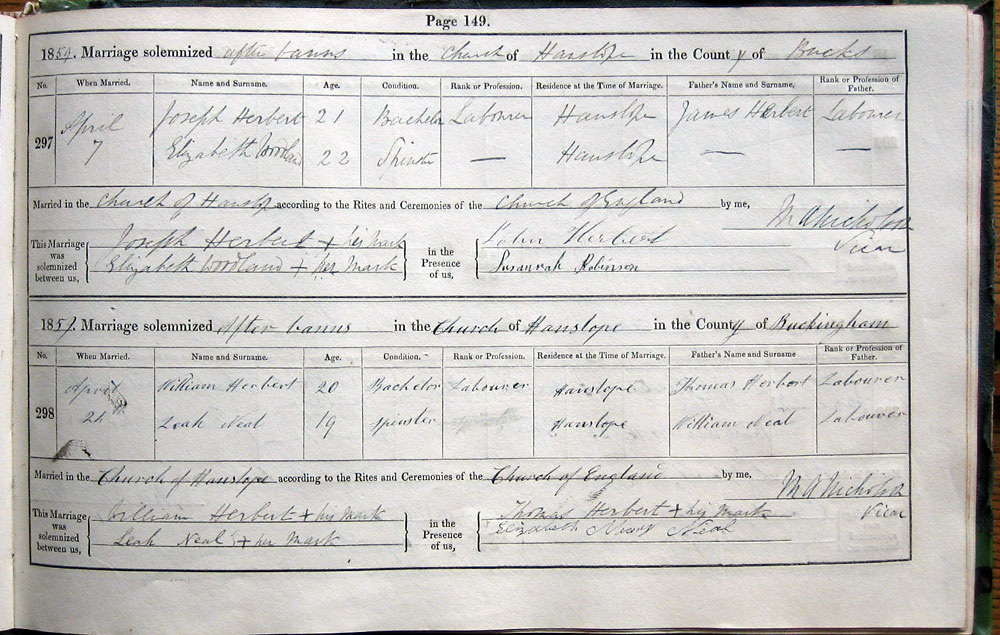 Page 149.
1859. Marriage solemnized after banns in the Church of Hanslope in the County of Bucks
No. When Married. Name and Surname. Age. Condition. Rank or Profession. Residence at the Time of Marriage. Father's Name and Surname. Rank or Profession of Father.
297 April 7 Joseph Herbert 21 Bachelor Labourer Hanslope James Herbert Labourer
Elizabeth Woodland 22 Spinster — Hanslope — —
Married in the Church of Hanslope according to the Rites and Ceremonies of the Church of England by me,
M A Nicholson
Vicar
This Marriage was solemnized between us,
Joseph Herbert + his mark
Elizabeth Woodland + her mark
in the Presence of us,
John Herbert
Susannah Robinson
1859. Marriage solemnized After banns in the Church of Hanslope in the County of Buckingham
No. When Married. Name and Surname. Age. Condition. Rank or Profession. Residence at the Time of Marriage. Father's Name and Surname Rank or Profession of Father.
298 April 24 William Herbert 20 Bachelor Labourer Hanslope Thomas Herbert Labourer
Leah Neal 19 Spinster Hanslope William Neal Labourer
Married in the Church of Hanslope according to the Rites and Ceremonies of the Church of England by me,
M A Nicholson
Vicar
This Marriage was solemnized between us,
William Herbert + his mark
Leah Neal + her mark
in the Presence of us,
Thomas Herbert + his mark
Elizabeth Neal